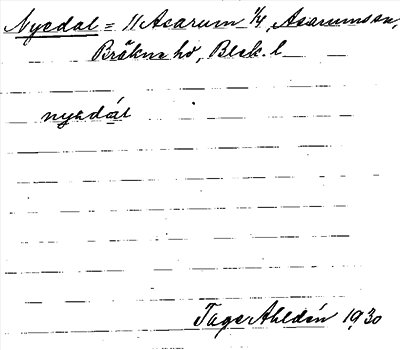 Nyedal = 11 Asarum 1/4, Asarums sn,
Bräkne hd, Blek. l
nyedál
Tage Ahldén 1930